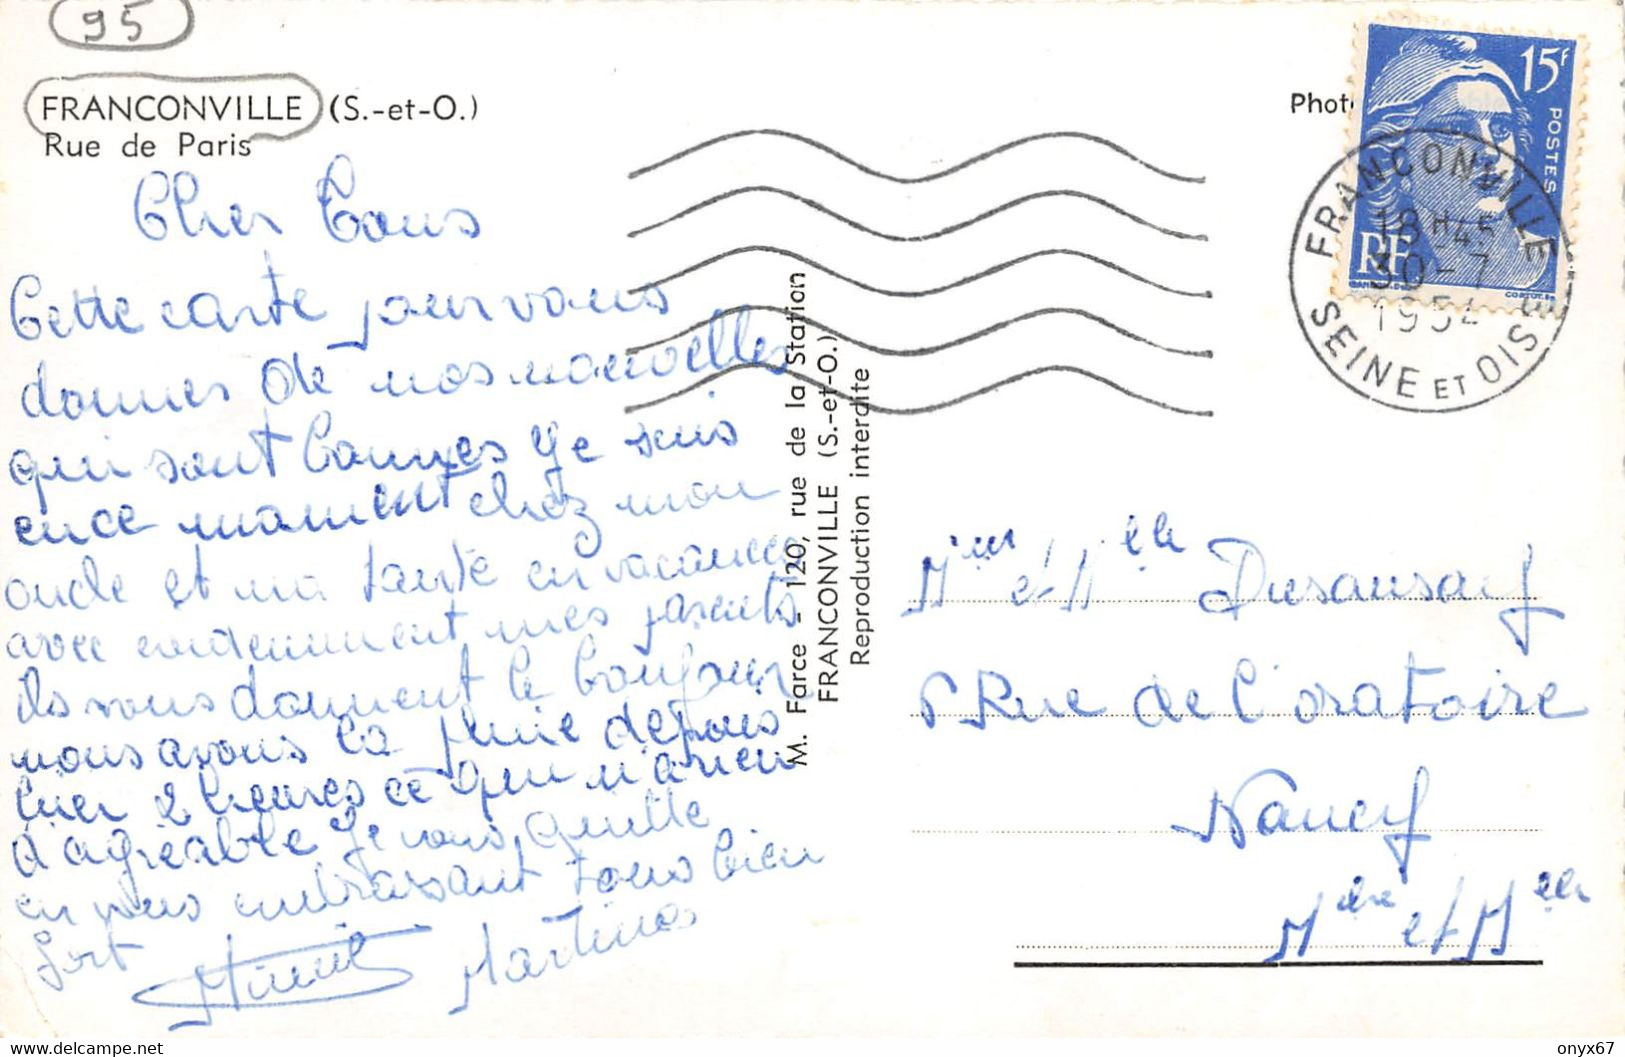 95
FRANCONVILLE (S.-et-O.)
Rue de Paris
Phot
15f
POSTES
RF
FRANCONVILLE
18H45
30-7
1954
SEINE ET OISE
Cher Tous
Cette carte pour vous
donner de nos nouvelles
qui sont bonnes Je suis
en ce moment chez mon
oncle et ma tante en vacances
avec evidemment mes parents
ils vous donnent le bonjour
nous avons la pluie depuis
hier 2 heures ce qui n'a rien
d'agréable Je vous quitte
en vous embrassant tous bien
fort
Martines
M. Farce - 120, rue de la Station
FRANCONVILLE (S.-et-O.)
Reproduction interdite
et Melle
Rue de l'oratoire
Nancy
et Melle
Delcampe.net
onyx67